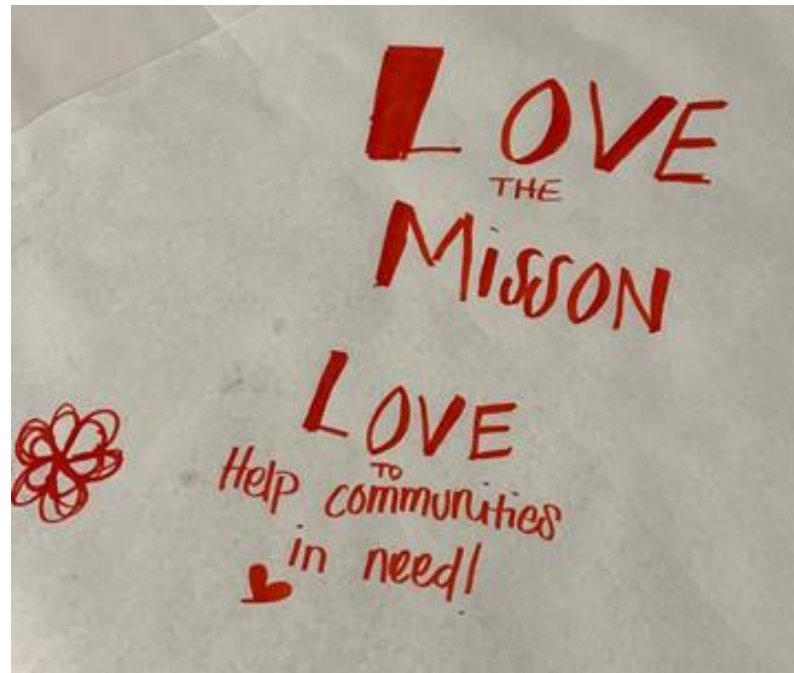 LOVE
THE
MissON
LOVE
TO
Help communities
in need!